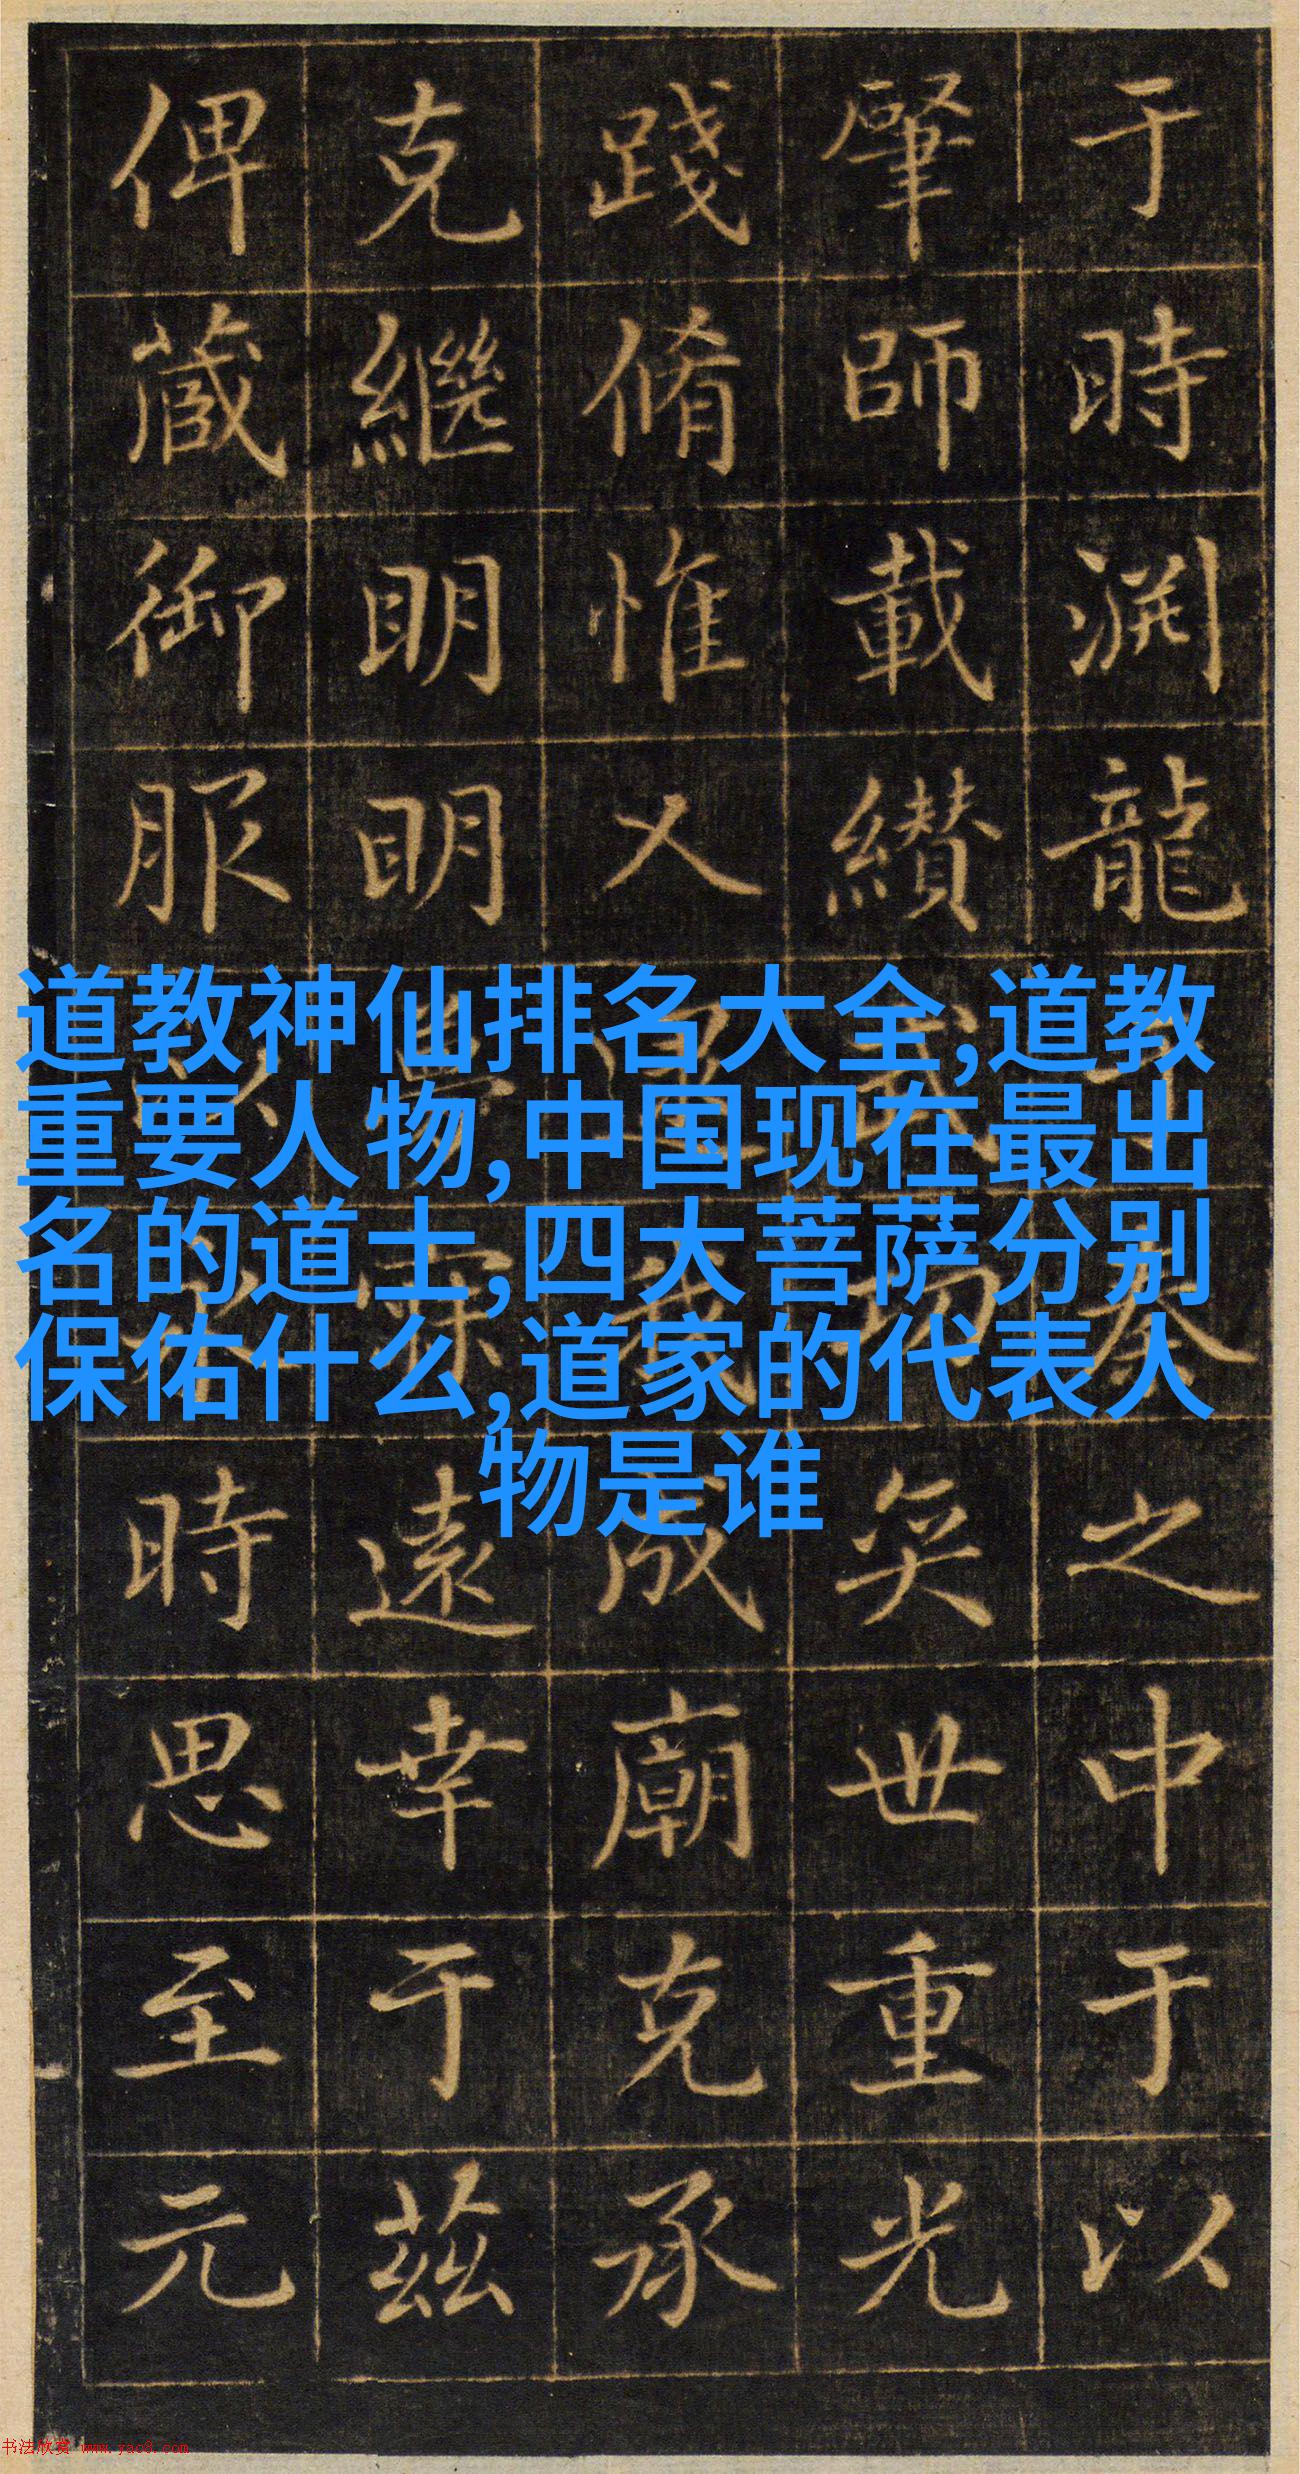 于時渊龍奏之中于以
肇師載纉武功奕世重光
踐脩惟乂我成廟克承
克繼明明學遠幸于茲
俾蕆御服以時思至元
道教神仙排名大全,道教
重要人物,中国现在最出
名的道士,四大菩萨分别
保佑什么,道家的代表人
物是谁
书法欣赏 www.yac8.com